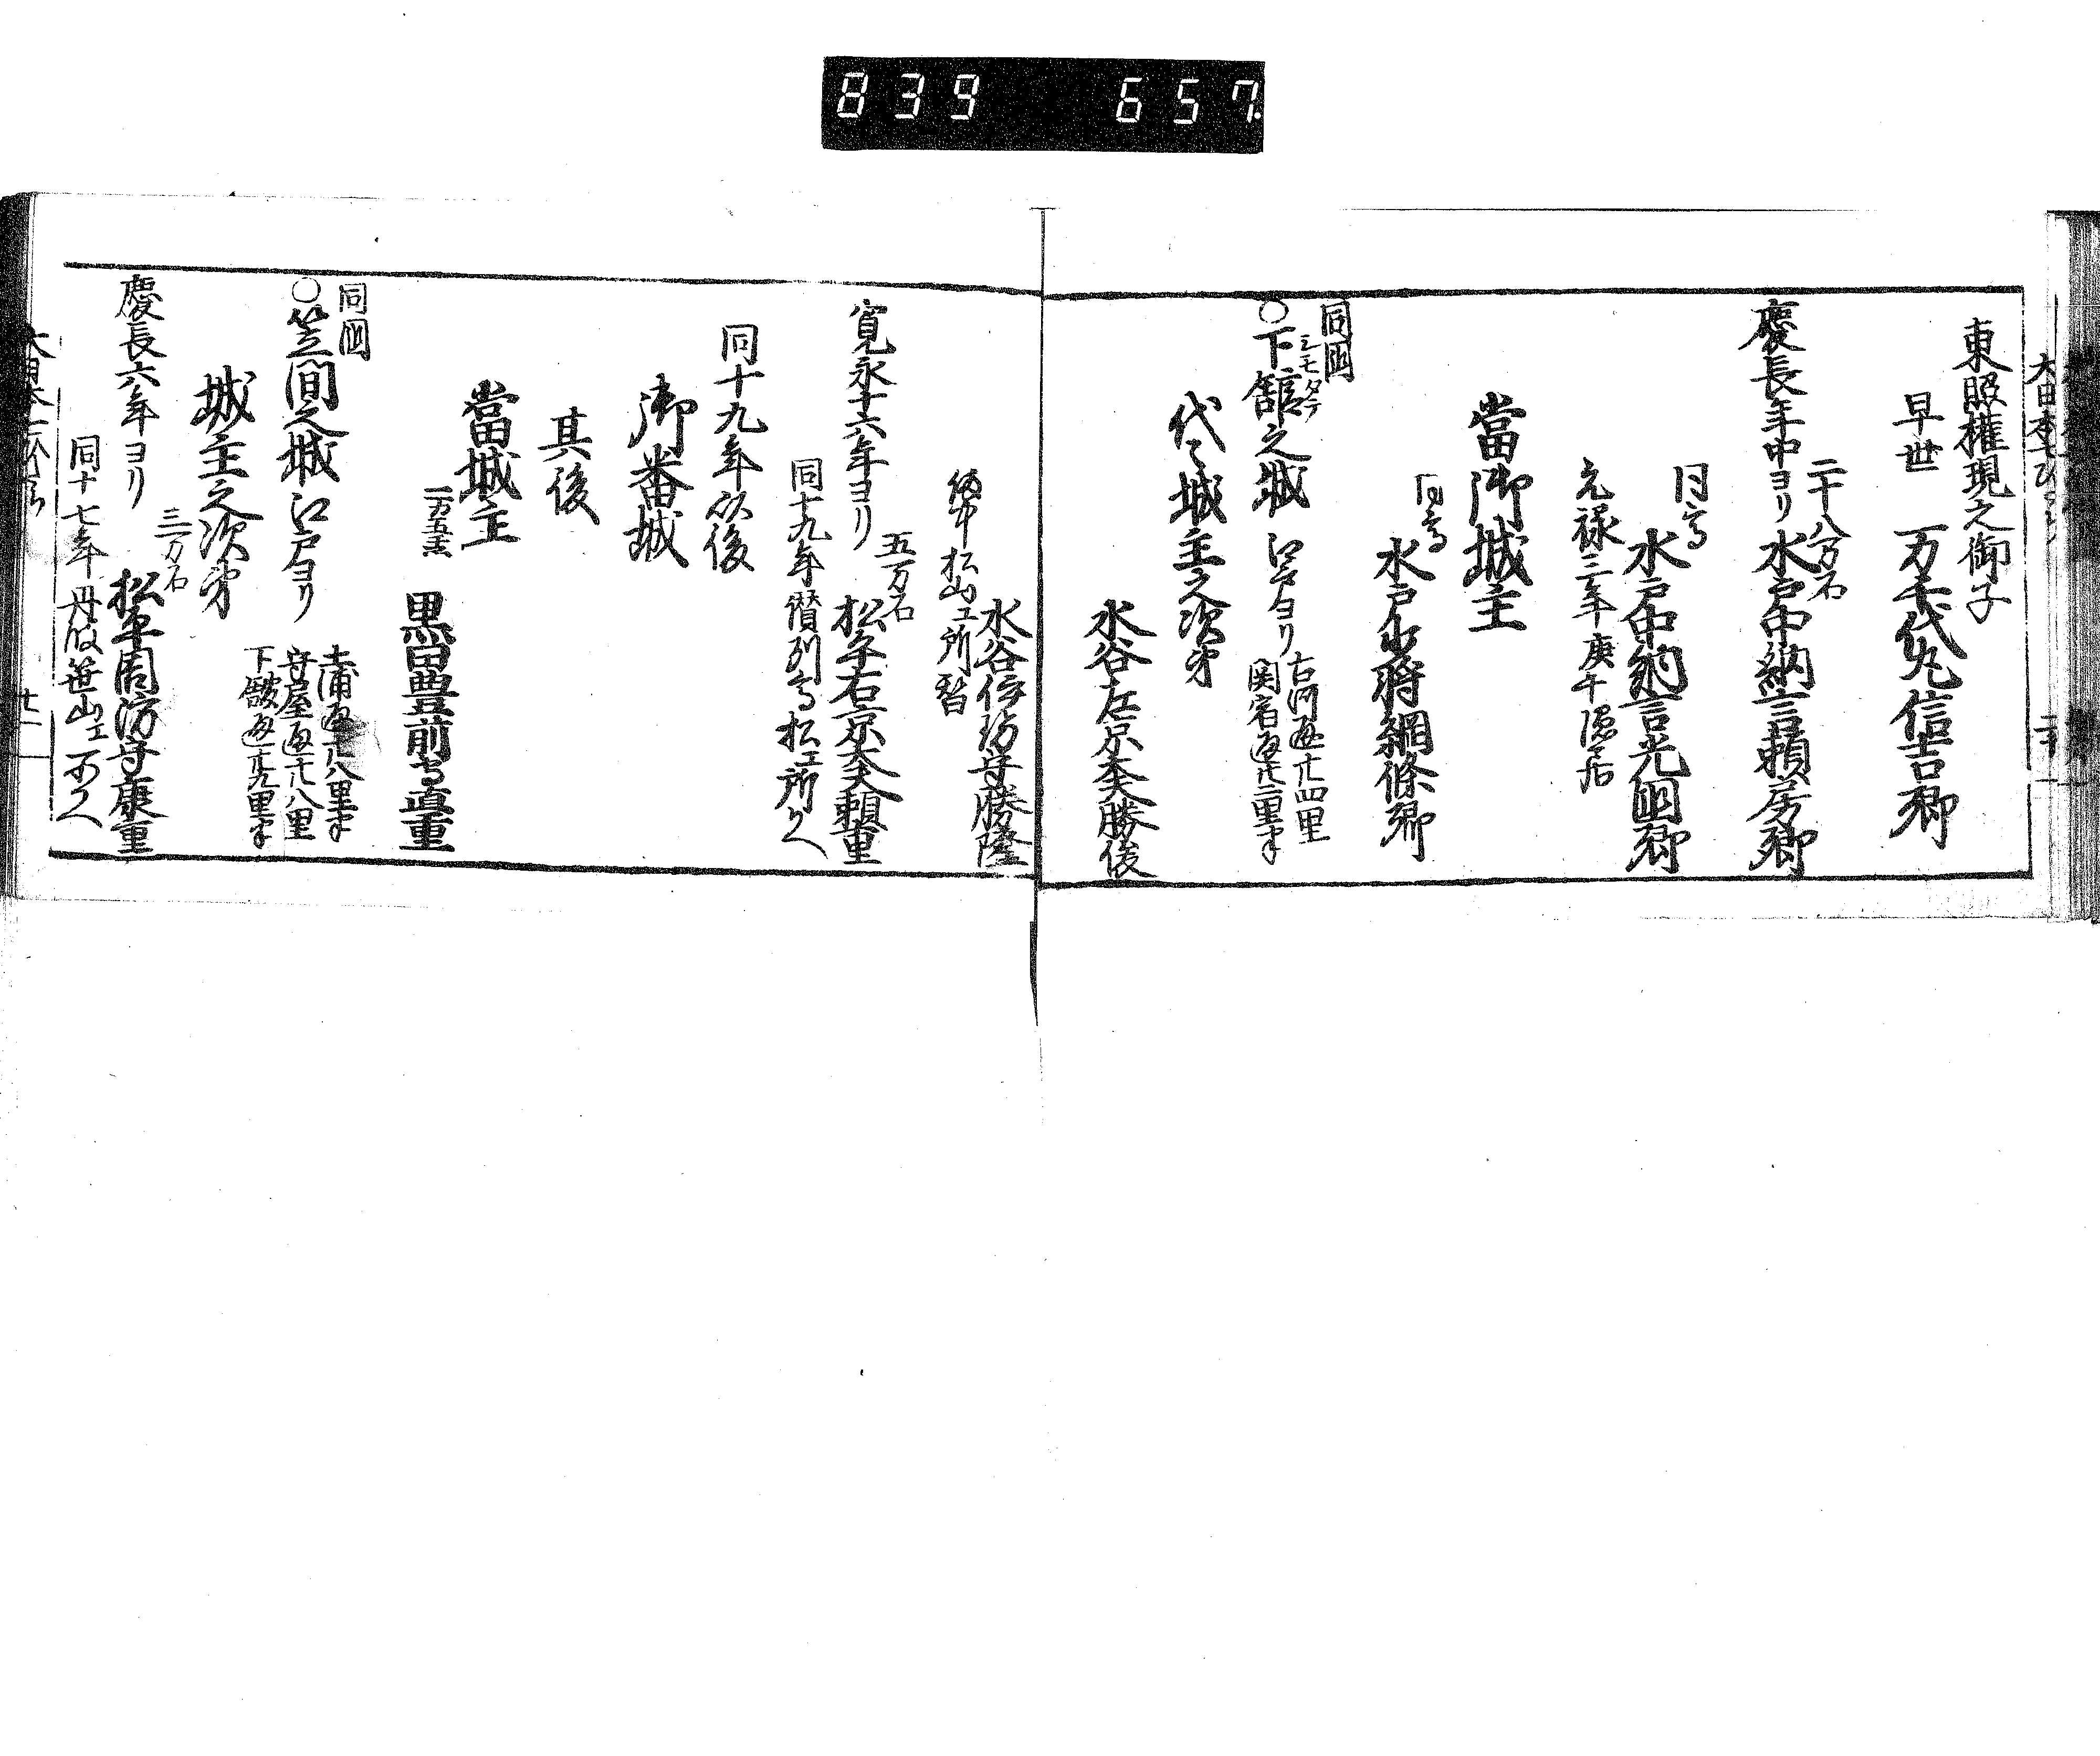 839 657
東照權現之御子
早世 万千代丸信吉卿
二十八万石
慶長年中ヨリ水戸中納言頼房卿
同高
水戸中納言光圀卿
元禄三年庚午隠居
當御城主
同高
水戸少将綱條卿
同国
シモタテ
○下舘之城 江戸ヨリ
古河通十四里
関宿通廿二里半
代々城主之次第
水谷左京大夫勝俊
水谷伊勢守勝隆
備中松山エ所替
五万石
寛永十六年ヨリ 松平右京大夫頼重
同十九年讃州高松エ所かへ
同十九年以後
御番城
其後
當城主
一万五千石
黒田豊前守直重
同国
○笠間之城 江戸ヨリ
土浦通廿八里半
守屋通廿八里
下舘通廿九里半
城主之次第
三万石
慶長六年ヨリ 松平周防守康重
同十七年丹波笹山エ所かへ